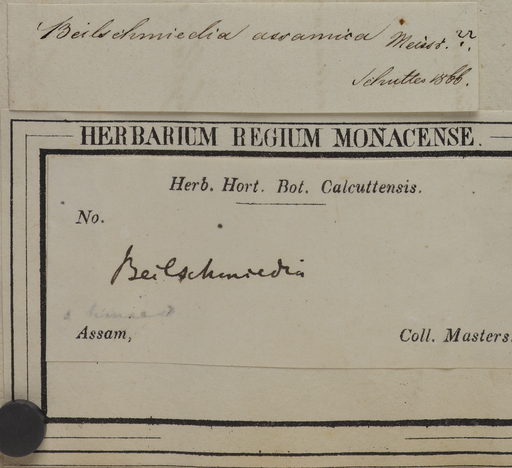 Beilschmiedia assamica Meissr. ??
Schulter 1866.
HERBARIUM REGIUM MONACENSE.
Herb. Hort. Bot. Calcuttensis.
No.
Beilschmiedia
Assam,
Coll. Masters.